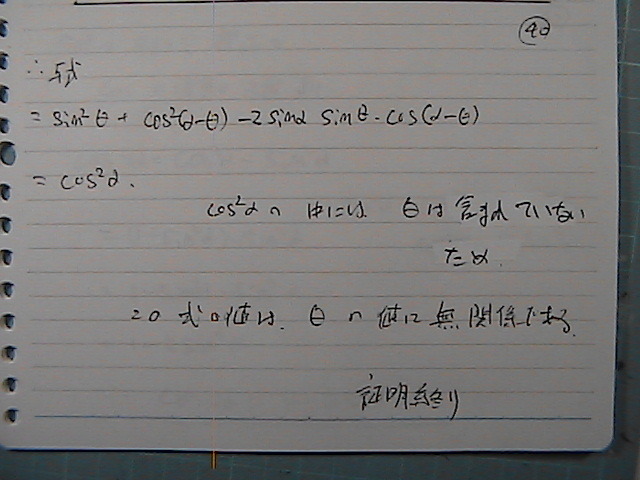 40
∴ 与式
= sin²θ + cos²(α-θ) - 2 sinα sinθ・cos(α-θ)
= cos²α.
cos²α の 中には θは 含まれていない
ため.
この 式の値は. θ の 値に 無関係である.
証明終り